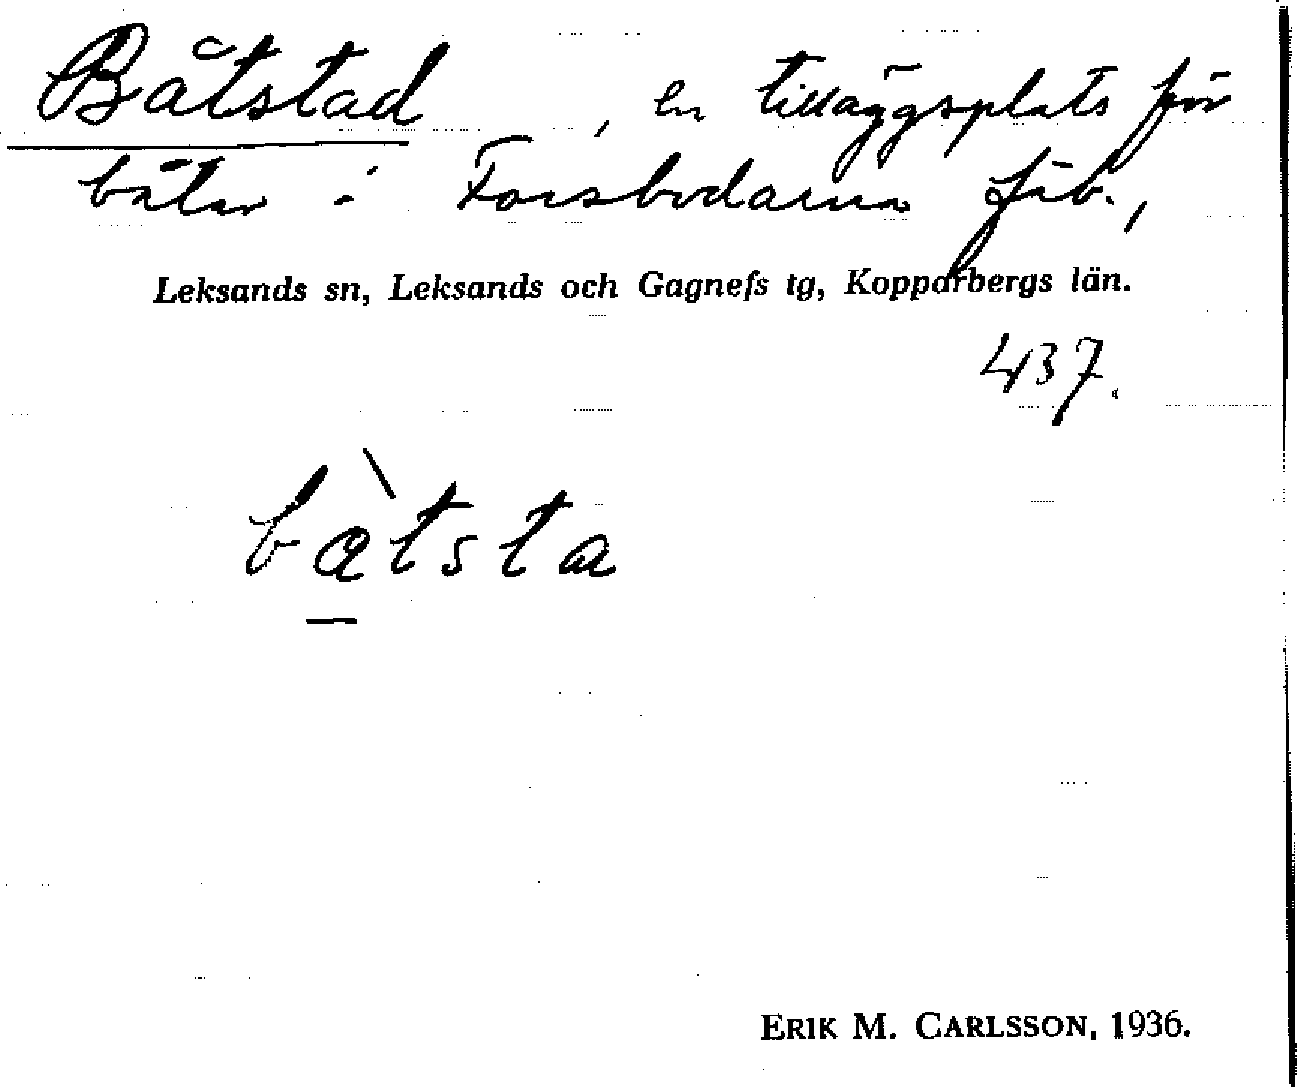 Båtstad, en tilläggsplats för
båtar i Forsbodarna fäb.,
Leksands sn, Leksands och Gagnefs tg, Kopparbergs län.
437.
bàtsta
ERIK M. CARLSSON, 1936.